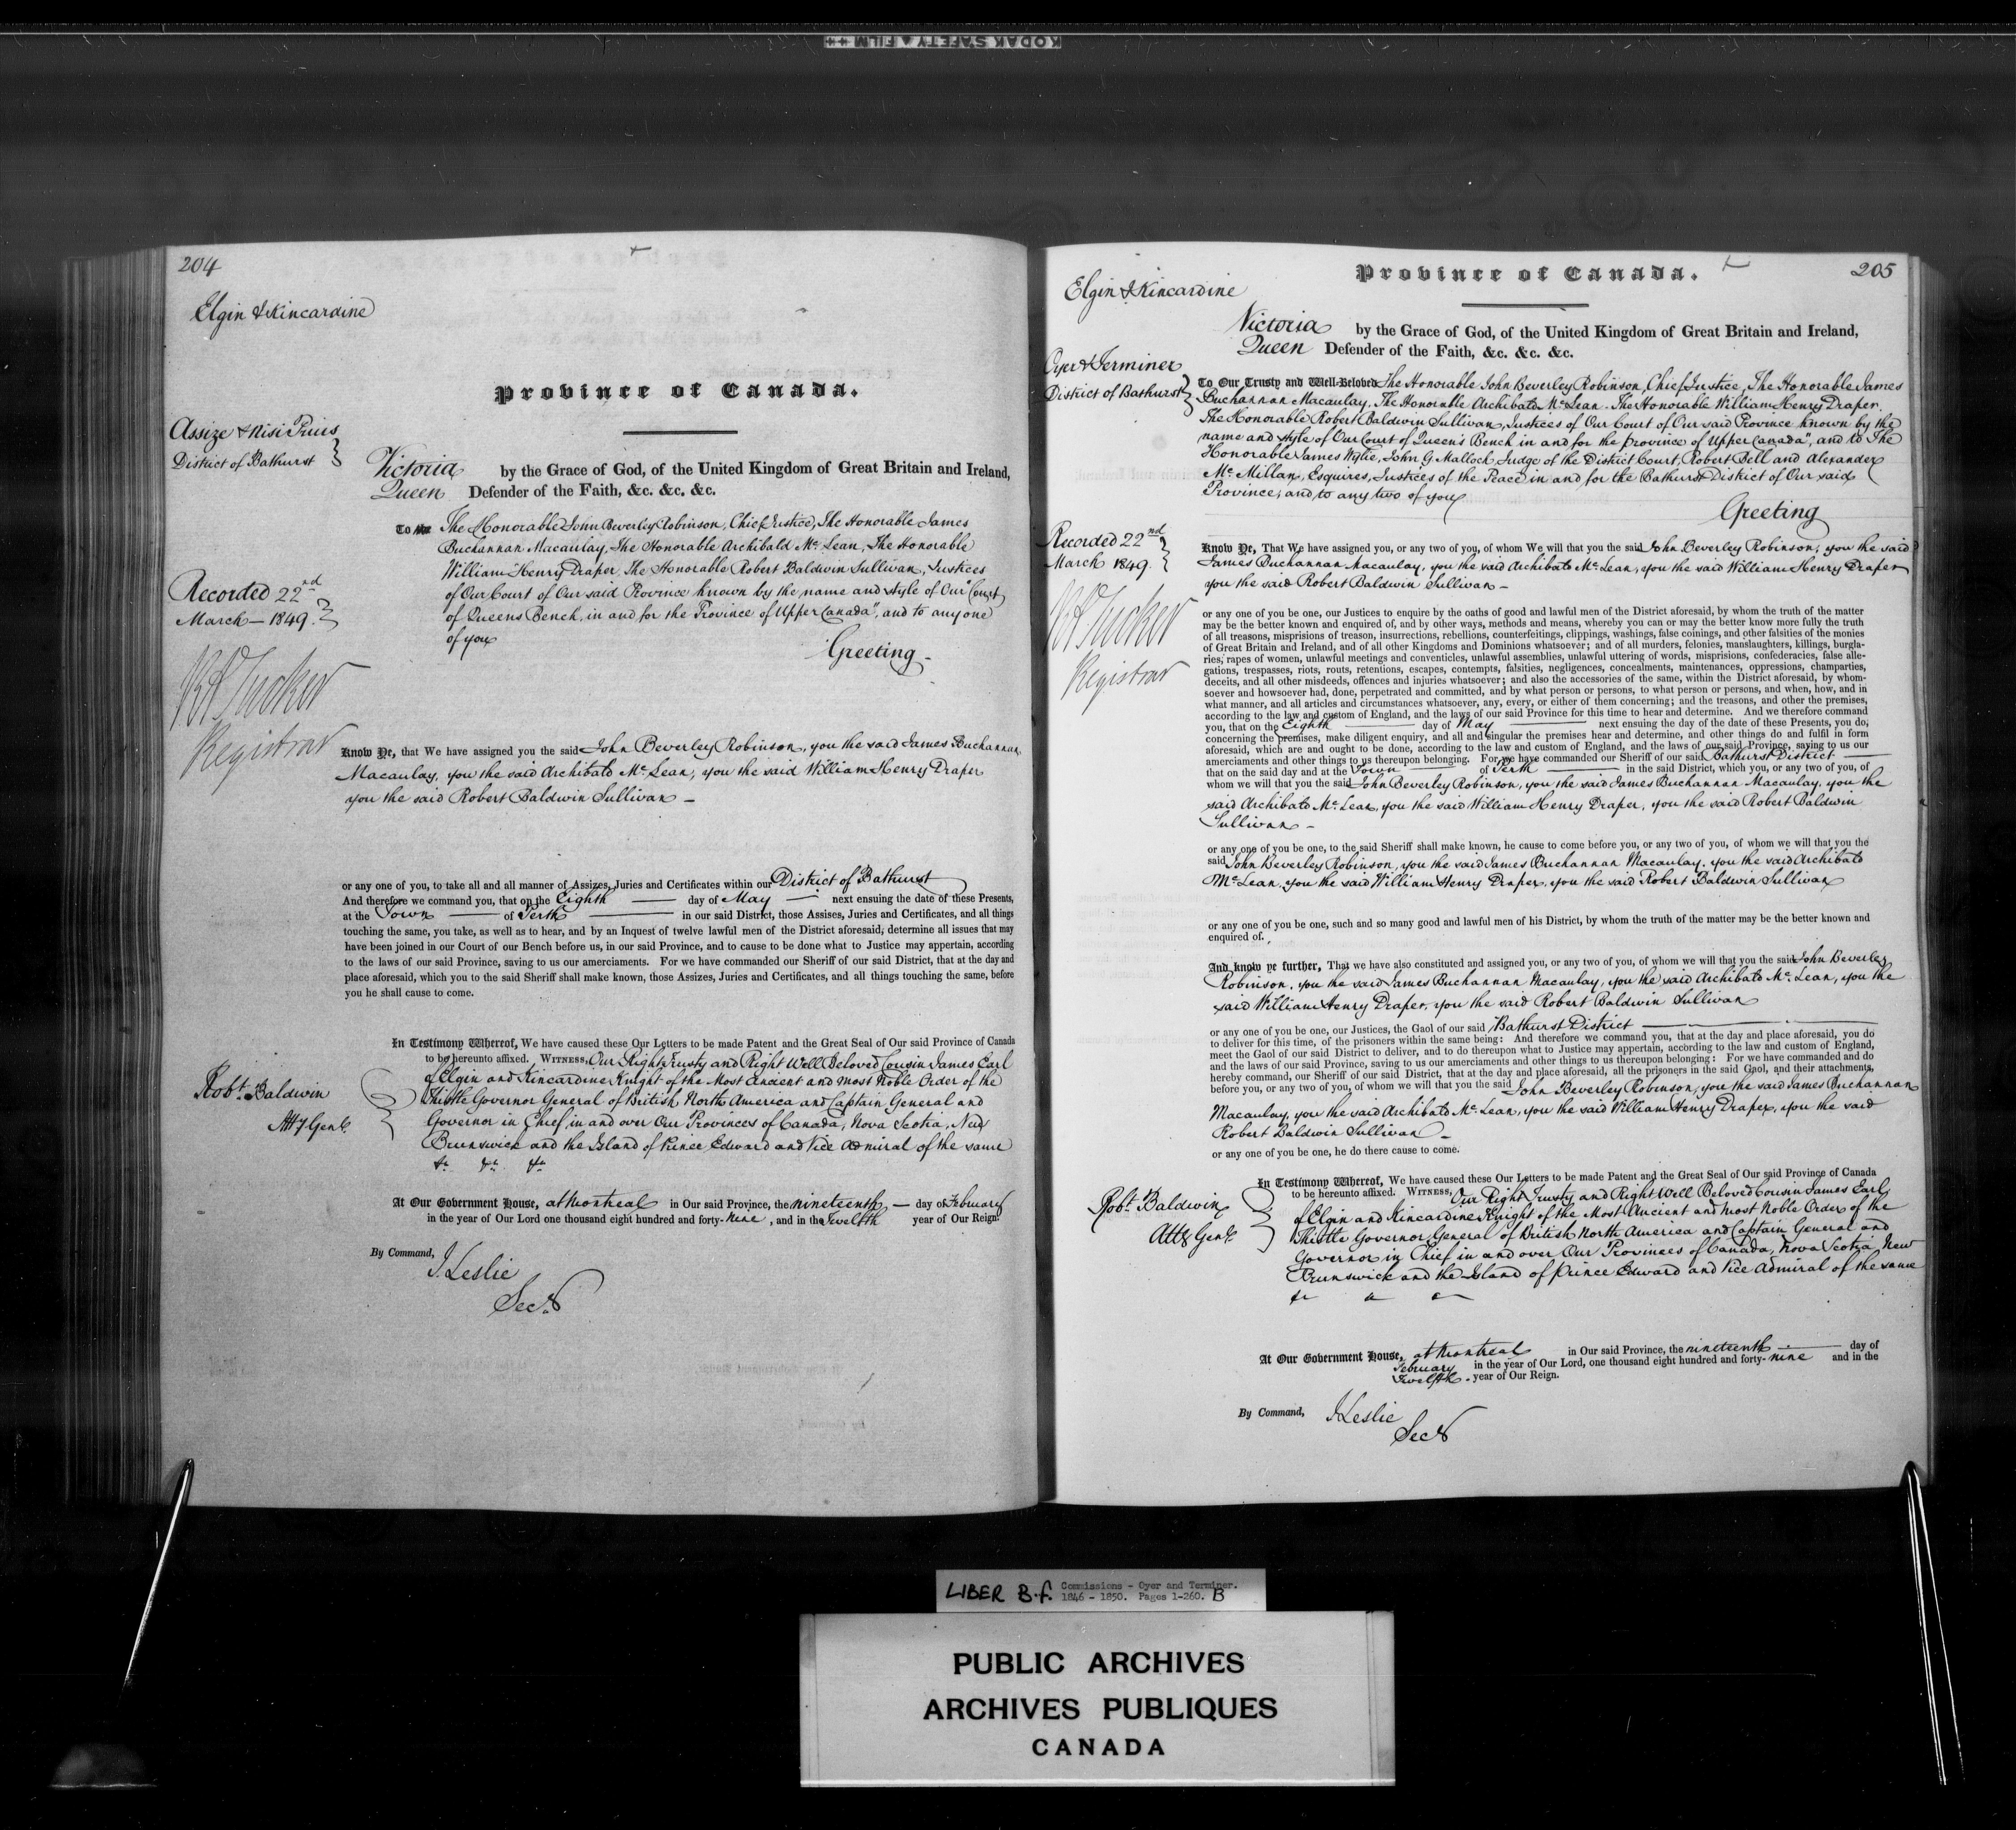 KODAK SAFETY FILM
204
Elgin & Kincardine
Province of Canada.
Assize & Nisi Prius
District of Bathurst
Victoria by the Grace of God, of the United Kingdom of Great Britain and Ireland,
Queen Defender of the Faith, &c. &c. &c.
To The Honorable John Beverley Robinson, Chief Justice, The Honorable James
Buchannan Macaulay, The Honorable Archibald Mc Lean, The Honorable
William Henry Draper The Honorable Robert Baldwin Sullivan, Justices
of Our Court of Our said Province known by the name and style of Our "Court
of Queens Bench, in and for the Province of Upper Canada", and to any one
of you
Greeting -
Recorded 22nd
March - 1849.
R A Tucker
Registrar
Know Ye, that We have assigned you the said John Beverley Robinson, you the said James Buchannan
Macaulay, you the said Archibald Mc Lean, you the said William Henry Draper
you the said Robert Baldwin Sullivan -
or any one of you, to take all and all manner of Assizes, Juries and Certificates within our District of Bathurst
And therefore we command you, that on the Eighth day of May next ensuing the date of these Presents,
at the Town of Perth in our said District, those Assises, Juries and Certificates, and all things
touching the same, you take, as well as to hear, and by an Inquest of twelve lawful men of the District aforesaid, determine all issues that may
have been joined in our Court of our Bench before us, in our said Province, and to cause to be done what to Justice may appertain, according
to the laws of our said Province, saving to us our amerciaments. For we have commanded our Sheriff of our said District, that at the day and
place aforesaid, which you to the said Sheriff shall make known, those Assizes, Juries and Certificates, and all things touching the same, before
you he shall cause to come.
In Testimony Whereof, We have caused these Our Letters to be made Patent and the Great Seal of Our said Province of Canada
to be hereunto affixed. WITNESS, Our Right Trusty and Right Well Beloved Cousin James Earl
of Elgin and Kincardine Knight of the Most Ancient and most Noble Order of the
Thistle Governor General of British North America and Captain General and
Governor in Chief, in and over Our Provinces of Canada, Nova Scotia, New
Brunswick and the Island of Prince Edward and Vice Admiral of the same
&c &c &c
Robt. Baldwin
Atty Genl.
At Our Government House, at Montreal in Our said Province, the nineteenth - day of February
in the year of Our Lord one thousand eight hundred and forty-nine, and in the Twelfth year of Our Reign.
By Command,
J. Leslie
Secy
205
Province of Canada.
Elgin & Kincardine
Victoria by the Grace of God, of the United Kingdom of Great Britain and Ireland,
Queen Defender of the Faith, &c. &c. &c.
Oyer & Terminer
District of Bathurst
To Our Trusty and Well-Beloved The Honorable John Beverley Robinson, Chief Justice, The Honorable James
Buchannan Macaulay, The Honorable Archibald Mc Lean - The Honorable William Henry Draper,
The Honorable Robert Baldwin Sullivan, Justices of Our Court of Our said Province known by the
name and style of Our "Court of Queen's Bench in and for the Province of Upper Canada", and to The
Honorable James Wylie, John G Malloch, Judge of the District Court, Robert Bell and Alexander
Mc Millan, Esquires, Justices of the Peace in and for the Bathurst District of Our said
Province, and, to any two of you
Greeting
Recorded 22nd
March 1849.
R A Tucker
Registrar
Know Ye, That We have assigned you, or any two of you, of whom We will that you the said John Beverley Robinson, you the said
James Buchannan Macaulay, you the said Archibald Mc Lean, you the said William Henry Draper
you the said Robert Baldwin Sullivan -
or any one of you be one, our Justices to enquire by the oaths of good and lawful men of the District aforesaid, by whom the truth of the matter
may be the better known and enquired of, and by other ways, methods and means, whereby you can or may the better know more fully the truth
of all treasons, misprisions of treason, insurrections, rebellions, counterfeitings, clippings, washings, false coinings, and other falsities of the monies
of Great Britain and Ireland, and of all other Kingdoms and Dominions whatsoever; and of all murders, felonies, manslaughters, killings, burgla-
ries, rapes of women, unlawful meetings and conventicles, unlawful assemblies, unlawful uttering of words, misprisions, confederacies, false alle-
gations, trespasses, riots, routs, retentions, escapes, contempts, falsities, negligences, concealments, maintenances, oppressions, champarties,
deceits, and all other misdeeds, offences and injuries whatsoever; and also the accessories of the same, within the District aforesaid, by whom-
soever and howsoever had, done, perpetrated and committed, and by what person or persons, to what person or persons, and when, how, and in
what manner, and all articles and circumstances whatsoever, any, every, or either of them concerning; and the treasons, and other the premises,
according to the law and custom of England, and the laws of our said Province for this time to hear and determine. And we therefore command
you, that on the Eighth day of May next ensuing the day of the date of these Presents, you do,
concerning the premises, make diligent enquiry, and all and singular the premises hear and determine, and other things do and fulfil in form
aforesaid, which are and ought to be done, according to the law and custom of England, and the laws of our said Province, saying to us our
amerciaments and other things to us thereupon belonging. For we have commanded our Sheriff of our said Bathurst District
that on the said day and at the Town of Perth in the said District, which you, or any two of you, of
whom we will that you the said John Beverley Robinson, you the said James Buchannan Macaulay, you the
said Archibald Mc Lean, you the said William Henry Draper, you the said Robert Baldwin
Sullivan -
or any one of you be one, to the said Sheriff shall make known, he cause to come before you, or any two of you, of whom we will that you the
said John Beverley Robinson, you the said James Buchannan Macaulay, you the said Archibald
Mc Lean, you the said William Henry Draper, you the said Robert Baldwin Sullivan
or any one of you be one, such and so many good and lawful men of his District, by whom the truth of the matter may be the better known and
enquired of.
And know ye further, That we have also constituted and assigned you, or any two of you, of whom we will that you the said John Beverley
Robinson, you the said James Buchannan Macaulay, you the said Archibald Mc Lean, you the
said William Henry Draper, you the said Robert Baldwin Sullivan
or any one of you be one, our Justices, the Gaol of our said Bathurst District
to deliver for this time, of the prisoners within the same being: And therefore we command you, that at the day and place aforesaid, you do
meet the Gaol of our said District to deliver, and to do thereupon what to Justice may appertain, according to the law and custom of England,
and the laws of our said Province, saving to us our amerciments and other things to us thereupon belonging: For we have commanded and do
hereby command, our Sheriff of our said District, that at the day and place aforesaid, all the prisoners in the said Gaol, and their attachments,
before you, or any two of you, of whom we will that you the said John Beverley Robinson, you the said James Buchannan
Macaulay, you the said Archibald Mc Lean, you the said William Henry Draper, you the said
Robert Baldwin Sullivan -
or any one of you be one, he do there cause to come.
In Testimony Whereof, We have caused these Our Letters to be made Patent and the Great Seal of Our said Province of Canada
to be hereunto affixed. WITNESS, Our Right Trusty and Right Well Beloved Cousin James Earl
of Elgin and Kincardine Knight of the Most Ancient and most Noble Order of the
Thistle Governor General of British North America and Captain General and
Governor in Chief in and over Our Provinces of Canada, Nova Scotia, New
Brunswick and the Island of Prince Edward and Vice Admiral of the same
Robt. Baldwin
Atty Genl.
At Our Government House, at Montreal in Our said Province, the nineteenth day of
February in the year of Our Lord, one thousand eight hundred and forty-nine and in the
Twelfth year of Our Reign.
By Command, J. Leslie
Secy
LIBER B.f. Commissions - Oyer and Terminer.
1846 - 1850. Pages 1-260. B
PUBLIC ARCHIVES
ARCHIVES PUBLIQUES
CANADA